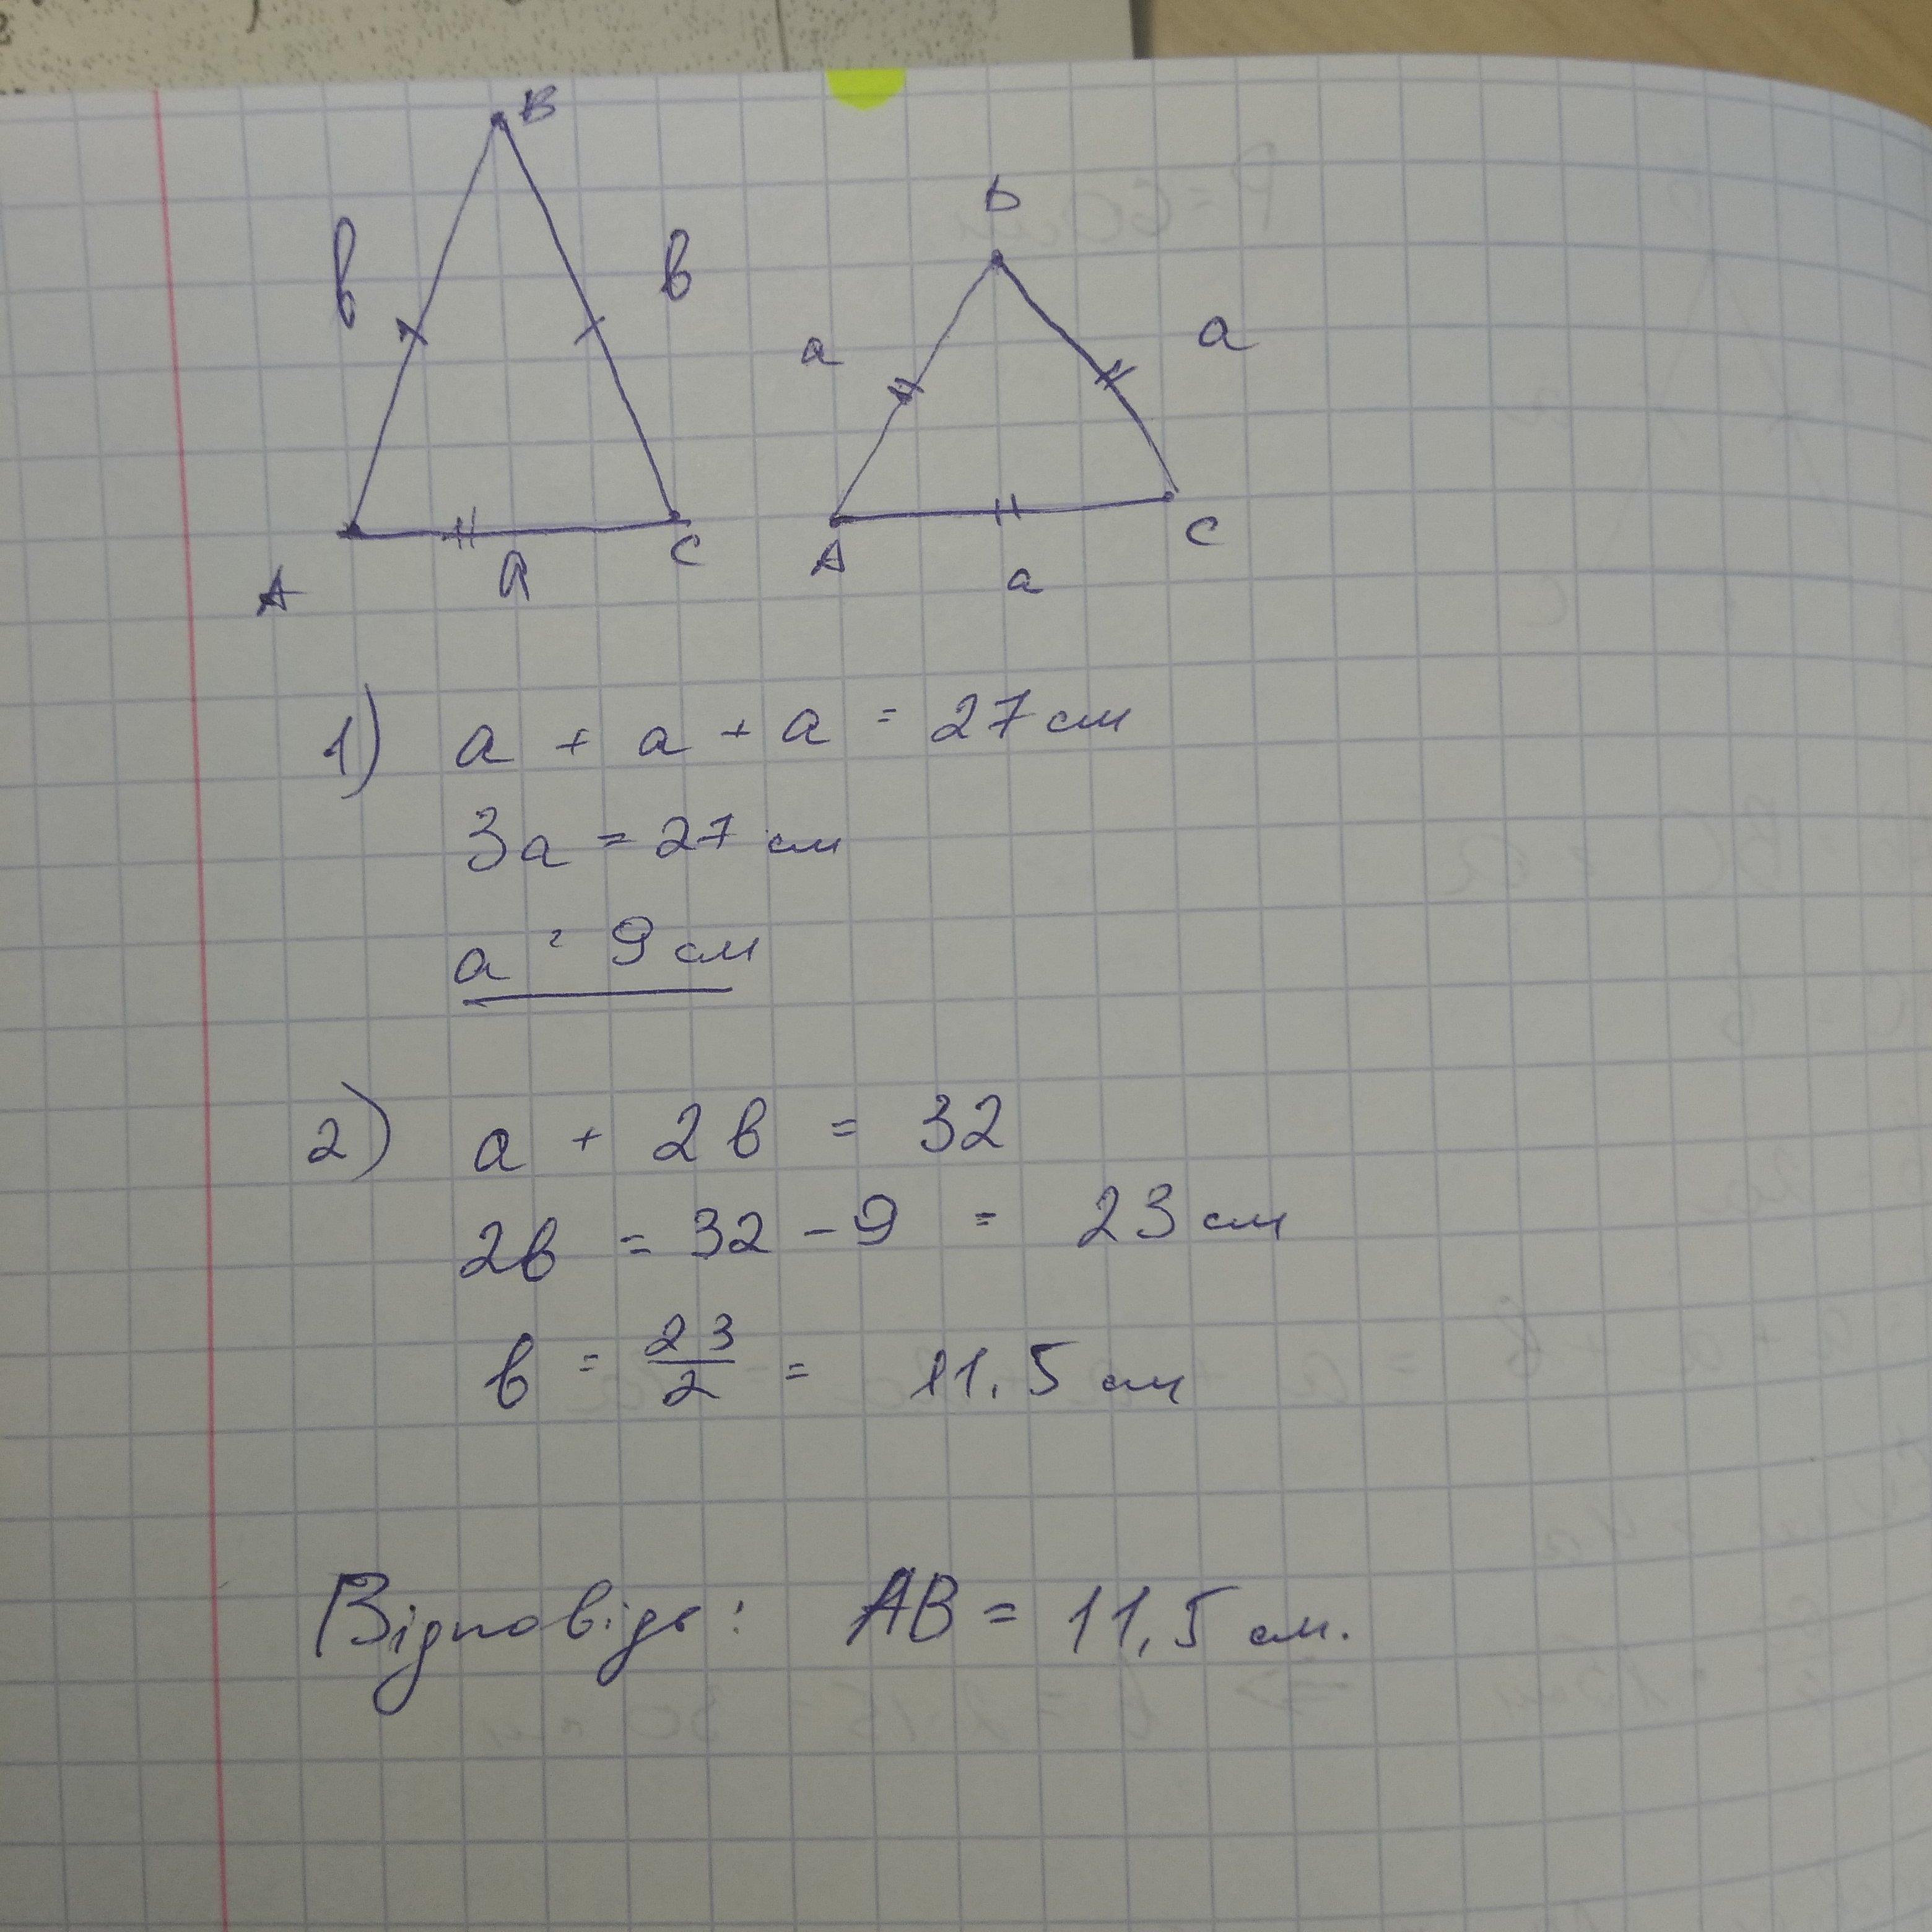 B
в в
A a C
D
a a
A a C
1) a + a + a = 27 см
3a = 27 см
a = 9 см
2) a + 2в = 32
2в = 32 - 9 = 23 см
в = 23/2 = 11,5 см
Відповідь: AB = 11,5 см.